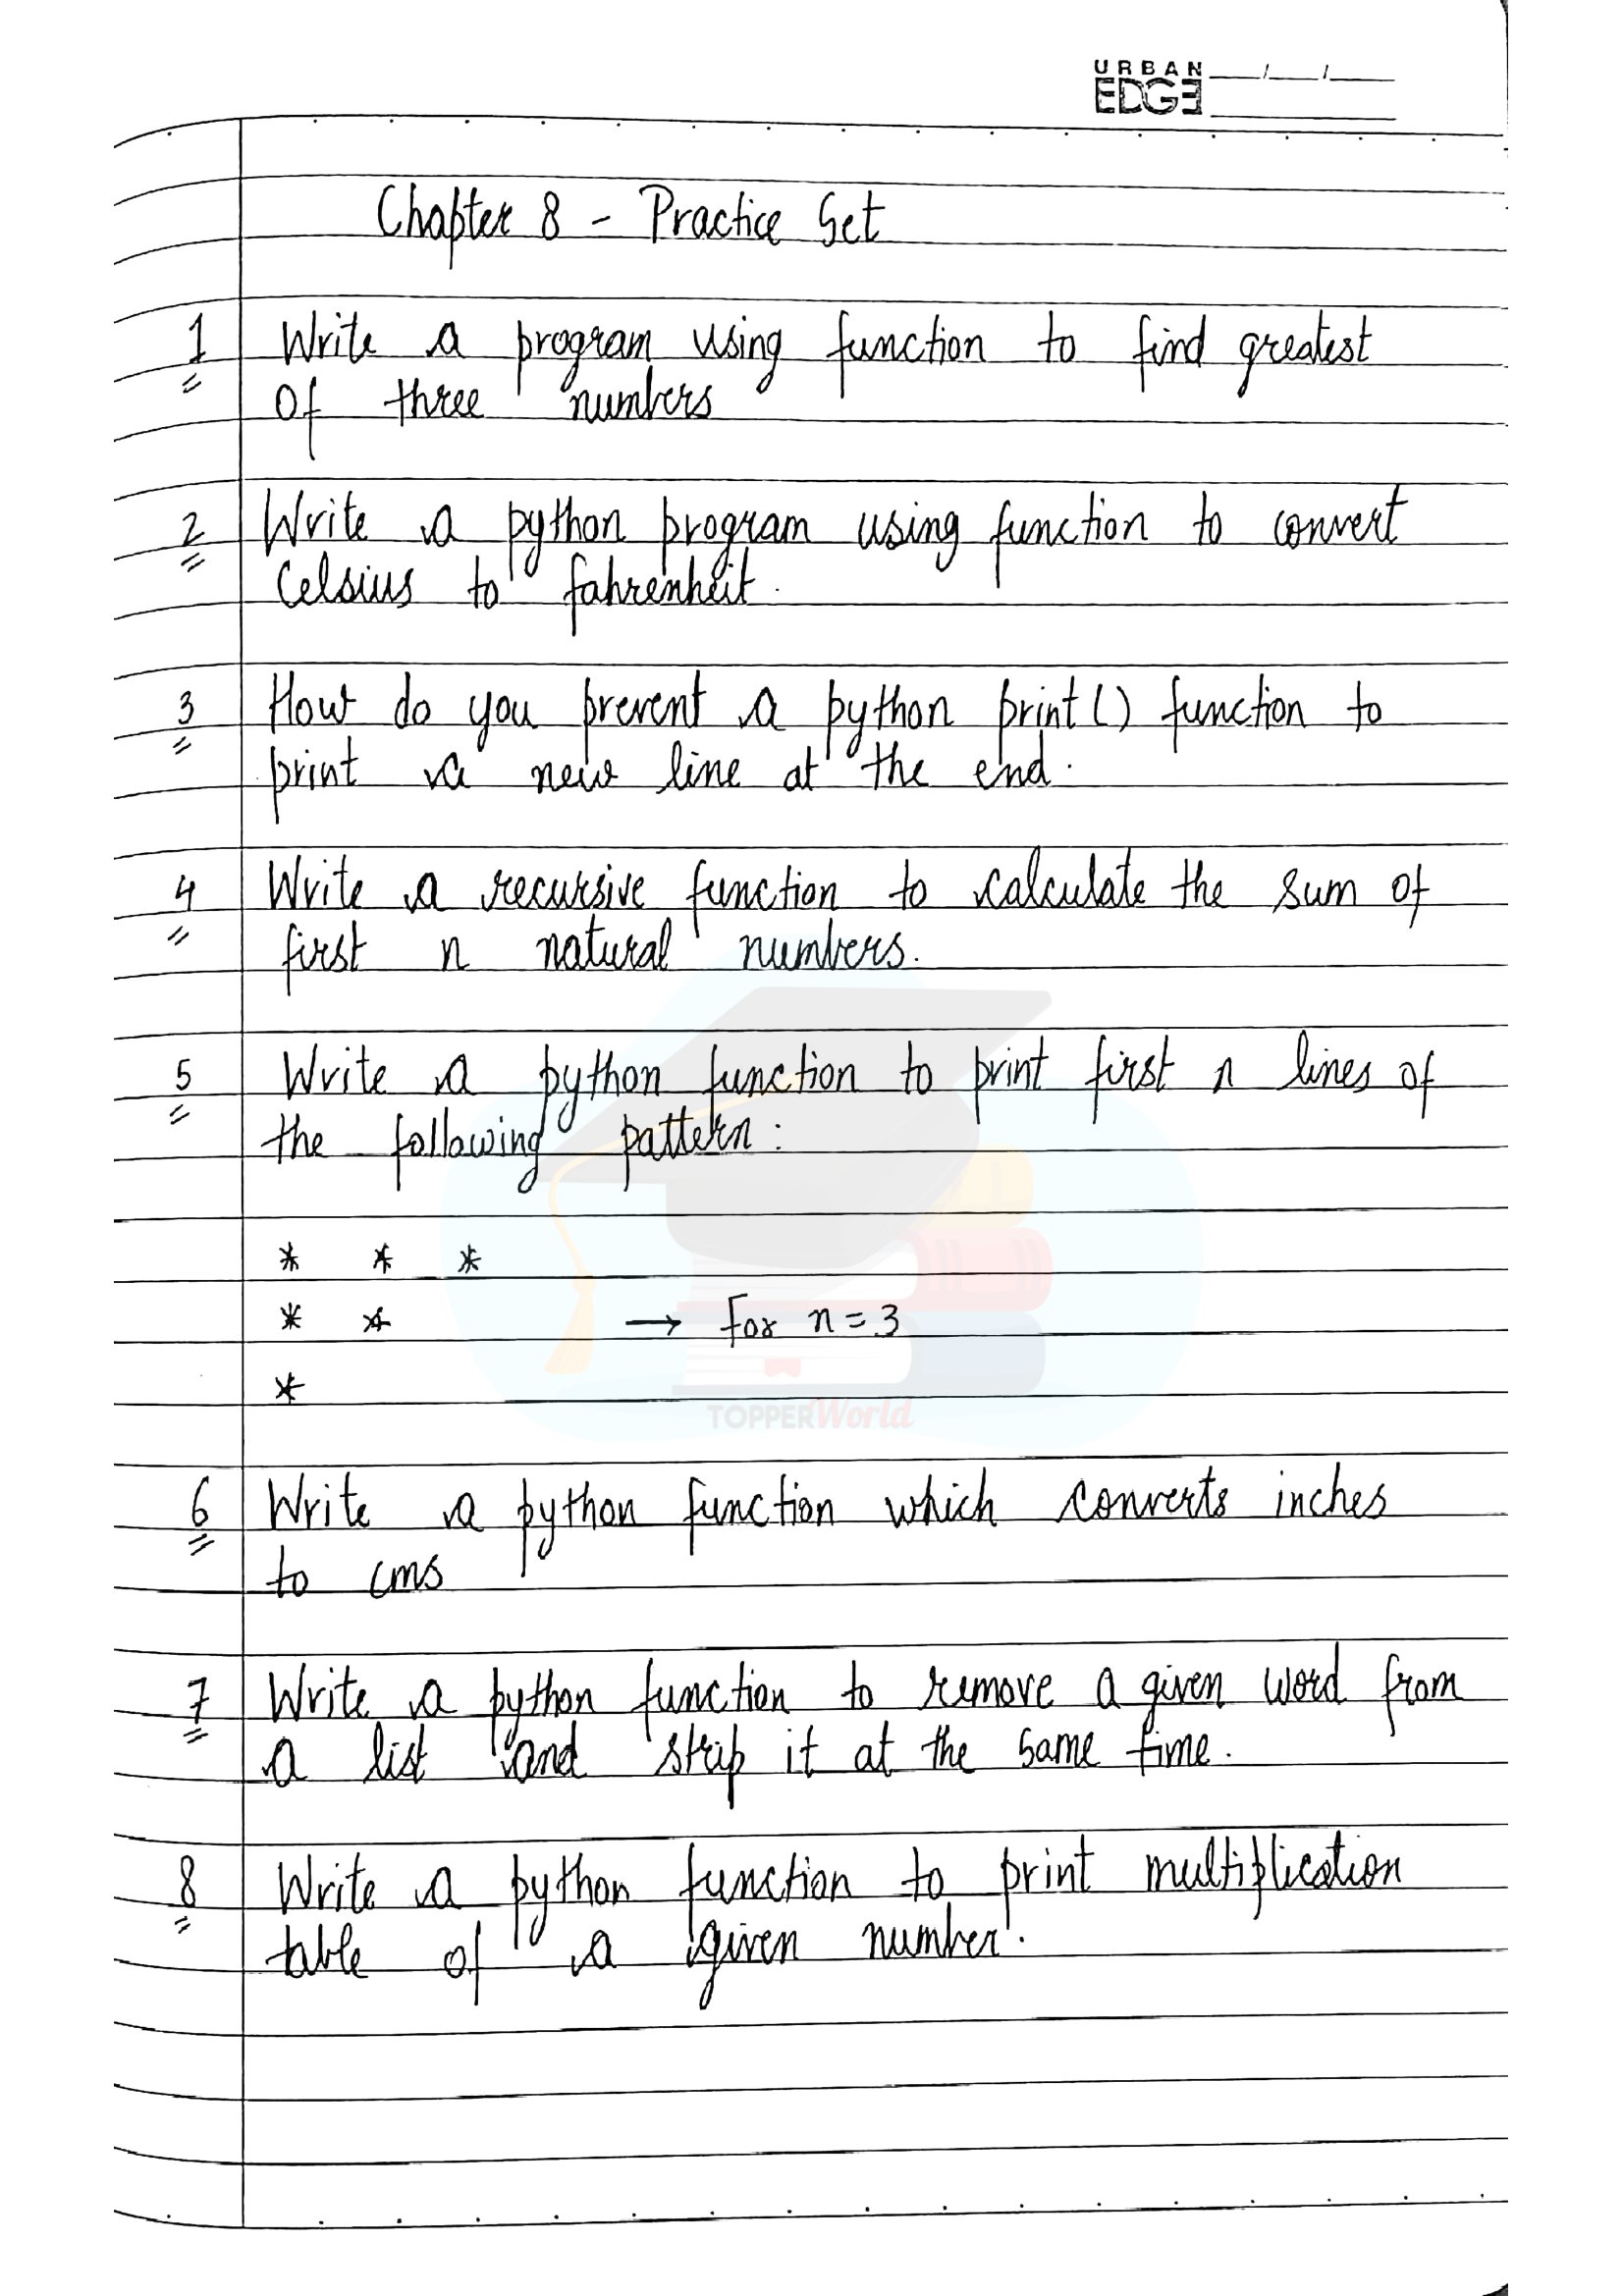 URBAN
EDGE
Chapter 8 - Practice Set
1 Write a program using function to find greatest
of three numbers
2 Write a python program using function to convert
Celsius to fahrenheit.
3 How do you prevent a python print() function to
print a new line at the end.
4 Write a recursive function to calculate the sum of
first n natural numbers.
5 Write a python function to print first n lines of
the following pattern:
* * *
* * → For n = 3
*
TOPPERWorld
6 Write a python function which converts inches
to cms
7 Write a python function to remove a given word from
a list and strip it at the same time.
8 Write a python function to print multiplication
table of a given number.